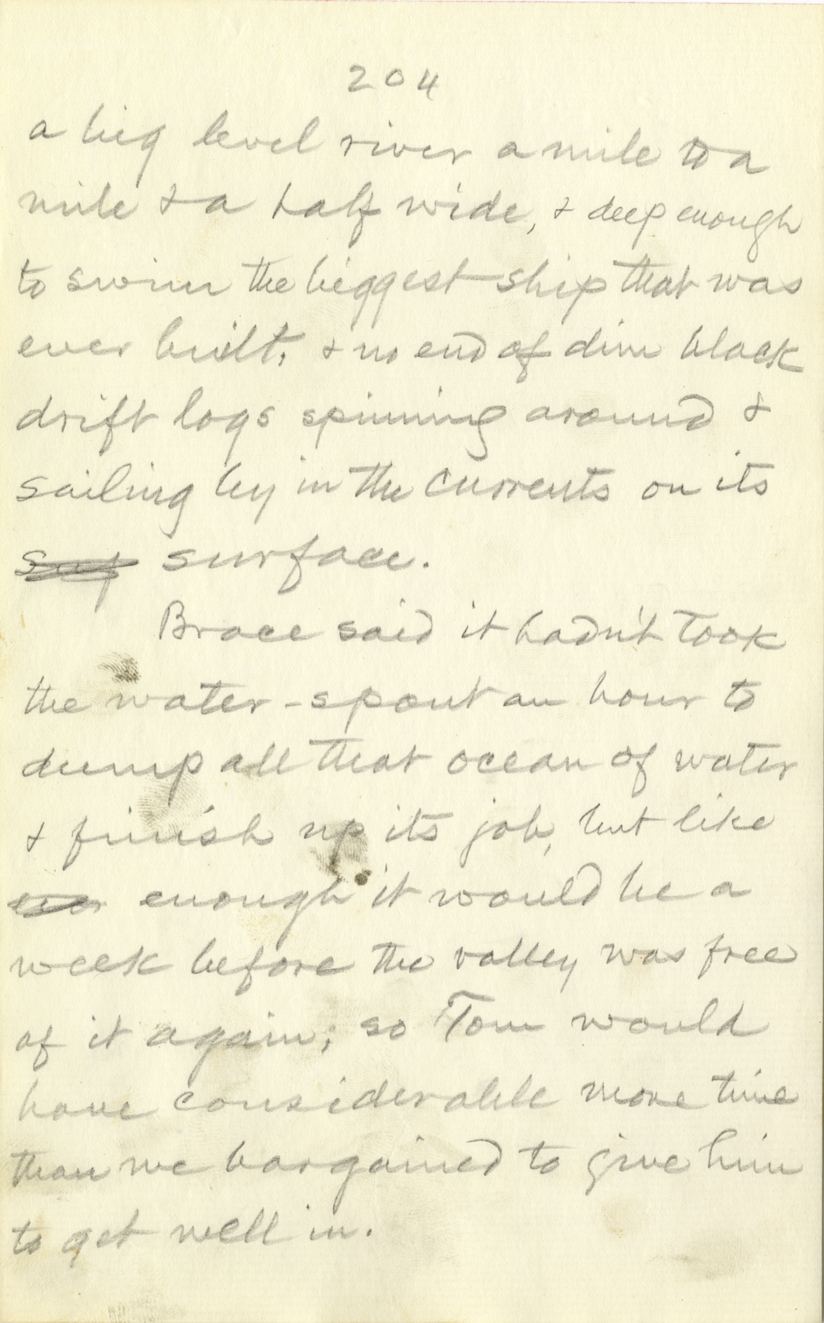 204
a big level river a mile to a
mile & a half wide, & deep enough
to swim the biggest ship that was
ever built, & no end of dim black
drift logs spinning around &
sailing by in the currents on its
surface.
Brace said it hadn't took
the water-spout an hour to
dump all that ocean of water
& finish up its job, but like
enough it would be a
week before the valley was free
of it again; so Tom would
have considerable more time
than we bargained to give him
to get well in.